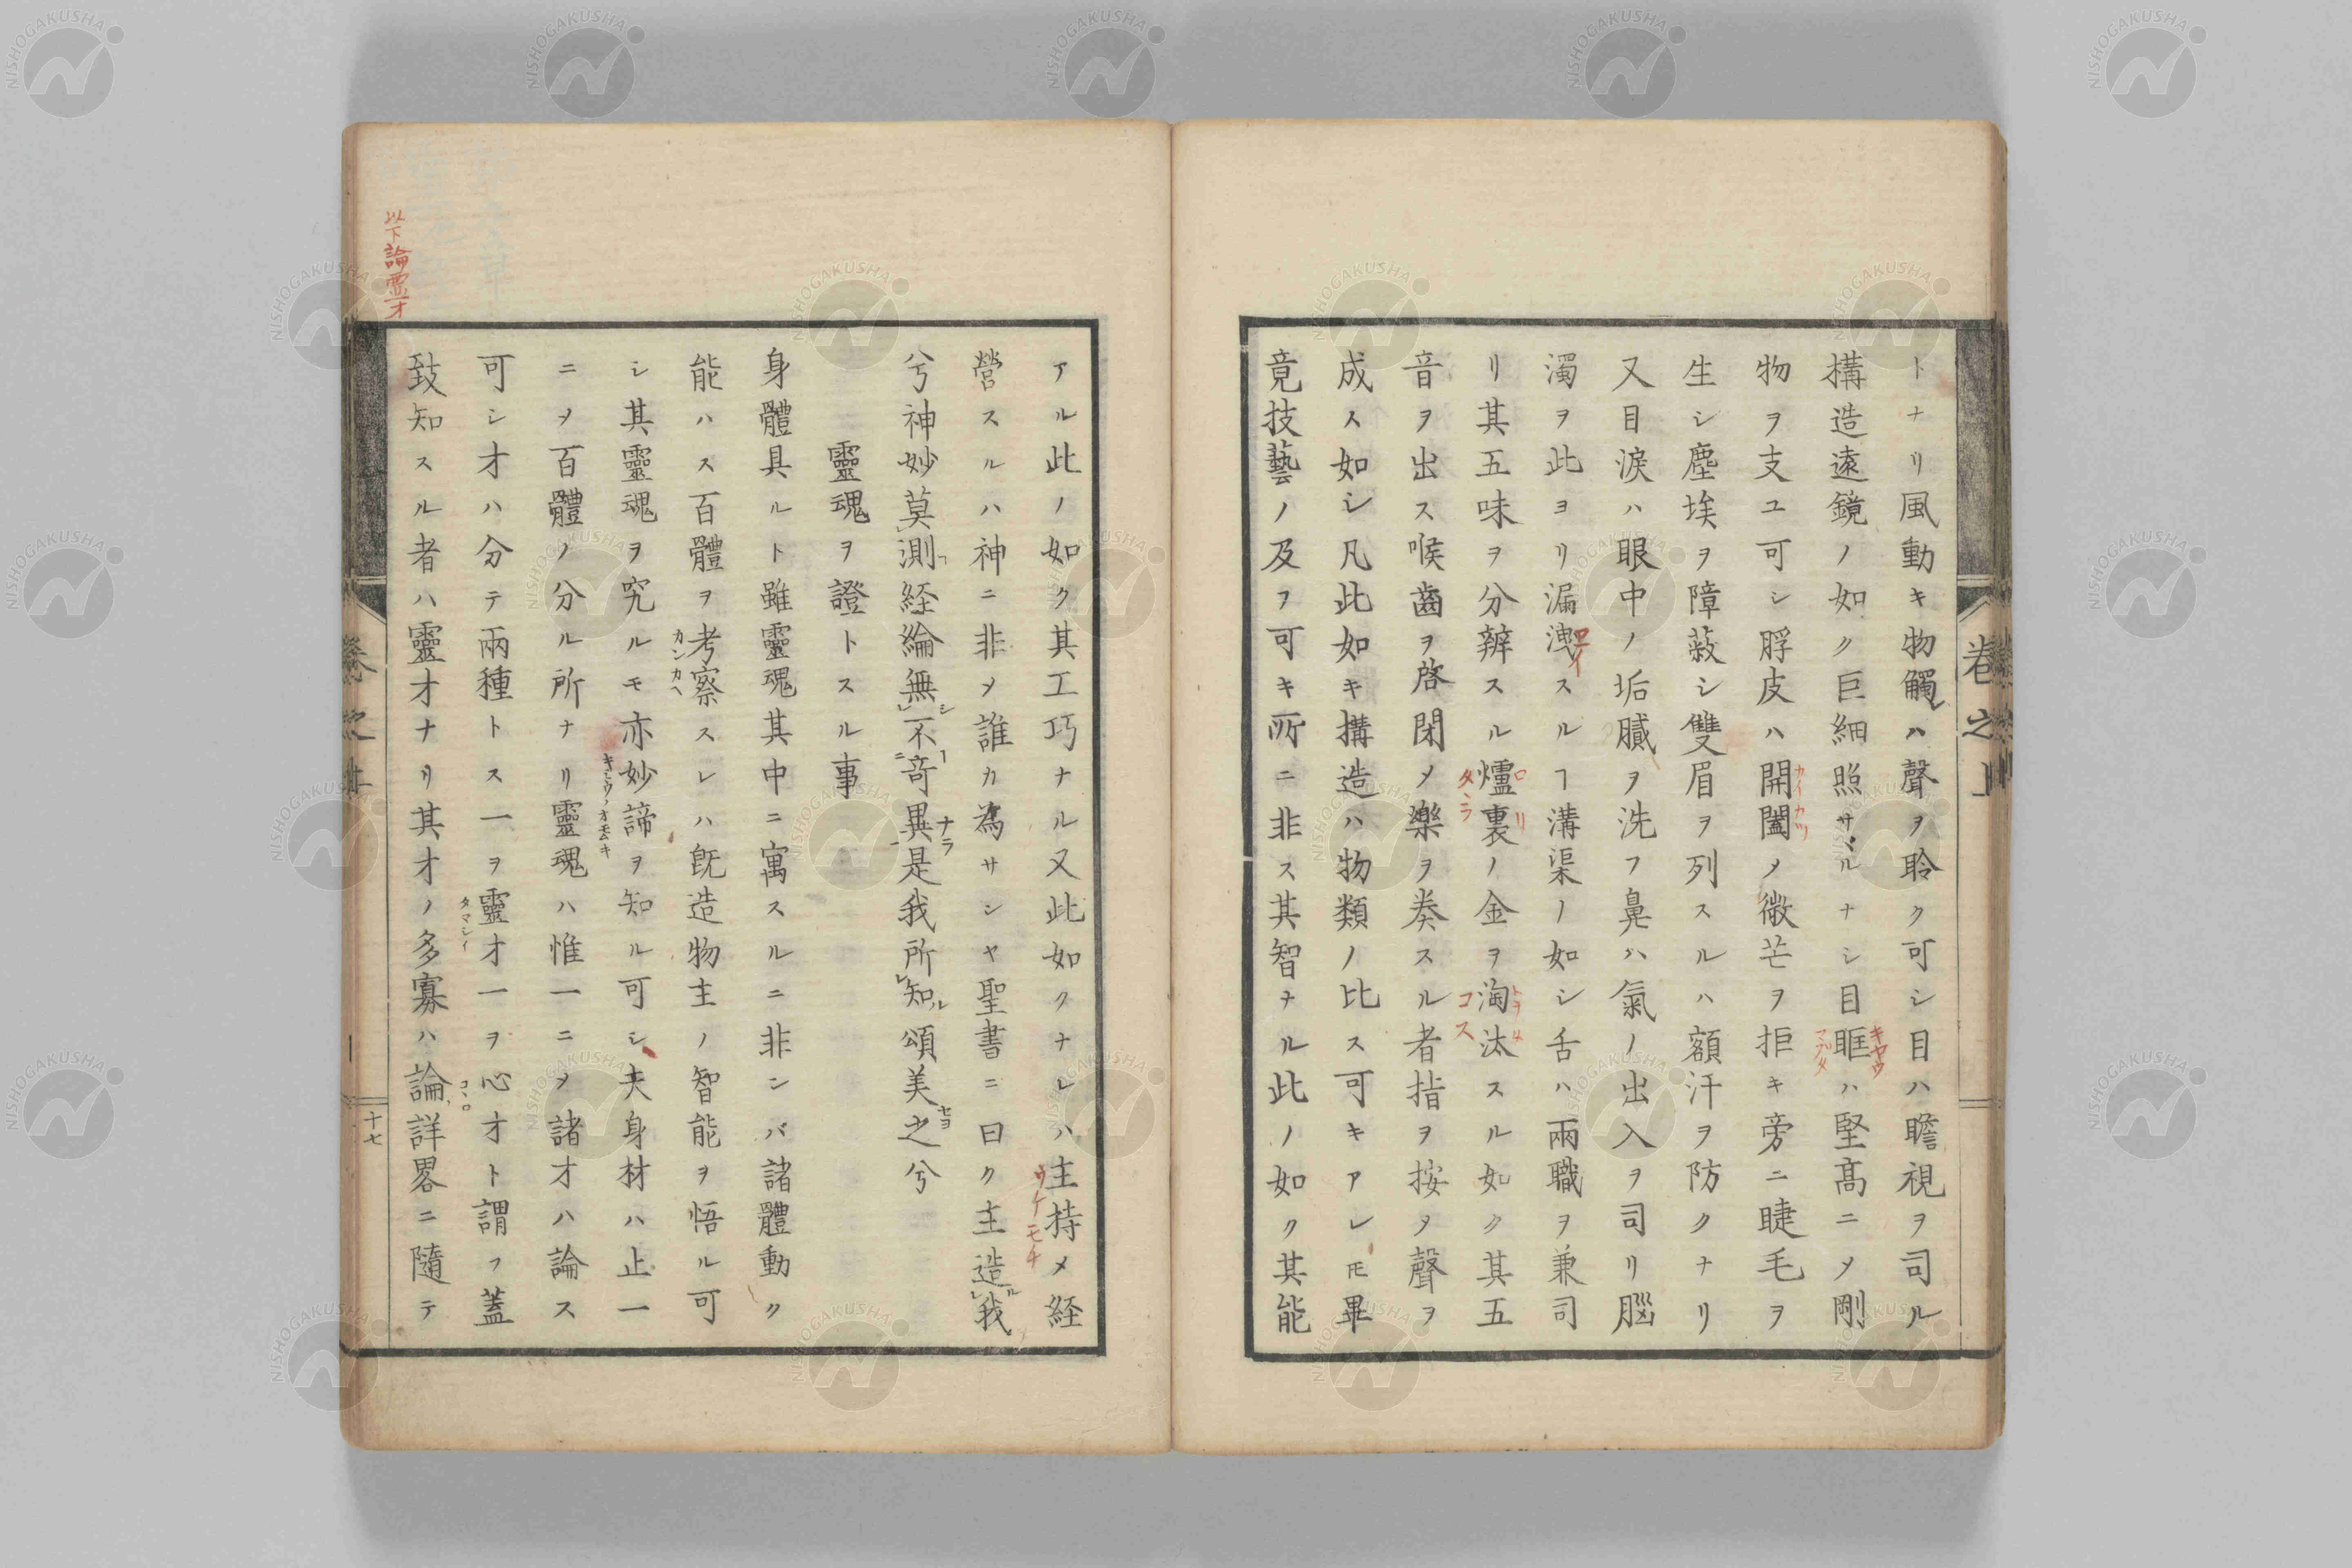 トナリ風動キ物觸レハ聲ヲ聆ク可シ目ハ瞻視ヲ司ル
構造遠鏡ノ如ク巨細照サヾルナシ目眶ハ堅髙ニメ剛
物ヲ支ユ可シ脬皮ハ開闔メ微芒ヲ拒キ旁ニ睫毛ヲ
生シ塵埃ヲ障蔽シ雙眉ヲ列スルハ額汗ヲ防クナリ
又目涙ハ眼中ノ垢膩ヲ洗フ鼻ハ氣ノ出入ヲ司リ腦
濁ヲ此ヨリ漏洩スルヿ溝渠ノ如シ舌ハ兩職ヲ兼司
リ其五味ヲ分辨スル爐裏ノ金ヲ淘汰スル如ク其五
音ヲ出ス喉齒ヲ啓閉メ樂ヲ奏スル者指ヲ按メ聲ヲ
成ス如シ凡此如キ搆造ハ物類ノ比ス可キアレ𪜈畢
竟技藝ノ及フ可キ所ニ非ス其智ナル此ノ如ク其能
卷之上
アル此ノ如ク其工巧ナル又此如クナレハ主持メ経
營スルハ神ニ非メ誰カ為サシヤ聖書ニ曰ク主造我
兮神妙莫測経綸無不竒異是我所知頌美之兮
靈魂ヲ證トスル事
身體具ルト雖靈魂其中ニ寓スルニ非ンバ諸體動ク
能ハス百體ヲ考察スレハ旣造物主ノ智能ヲ悟ル可
シ其靈魂ヲ究ルモ亦妙諦ヲ知ル可シ夫身材ハ止一
ニメ百體ノ分ル所ナリ靈魂ハ惟一ニメ諸才ハ論ス
可シ才ハ分テ兩種トス一ヲ靈才一ヲ心才ト謂フ蓋
致知スル者ハ靈才ナリ其才ノ多寡ハ論詳畧ニ隨テ
十七
以下論靈才
キヤウ
マブタ
カイカツ
ロリ
タヽラ
コス
ウケモチ
カンカヘ
タマシイ
コヽロ
NISHOGAKUSHA